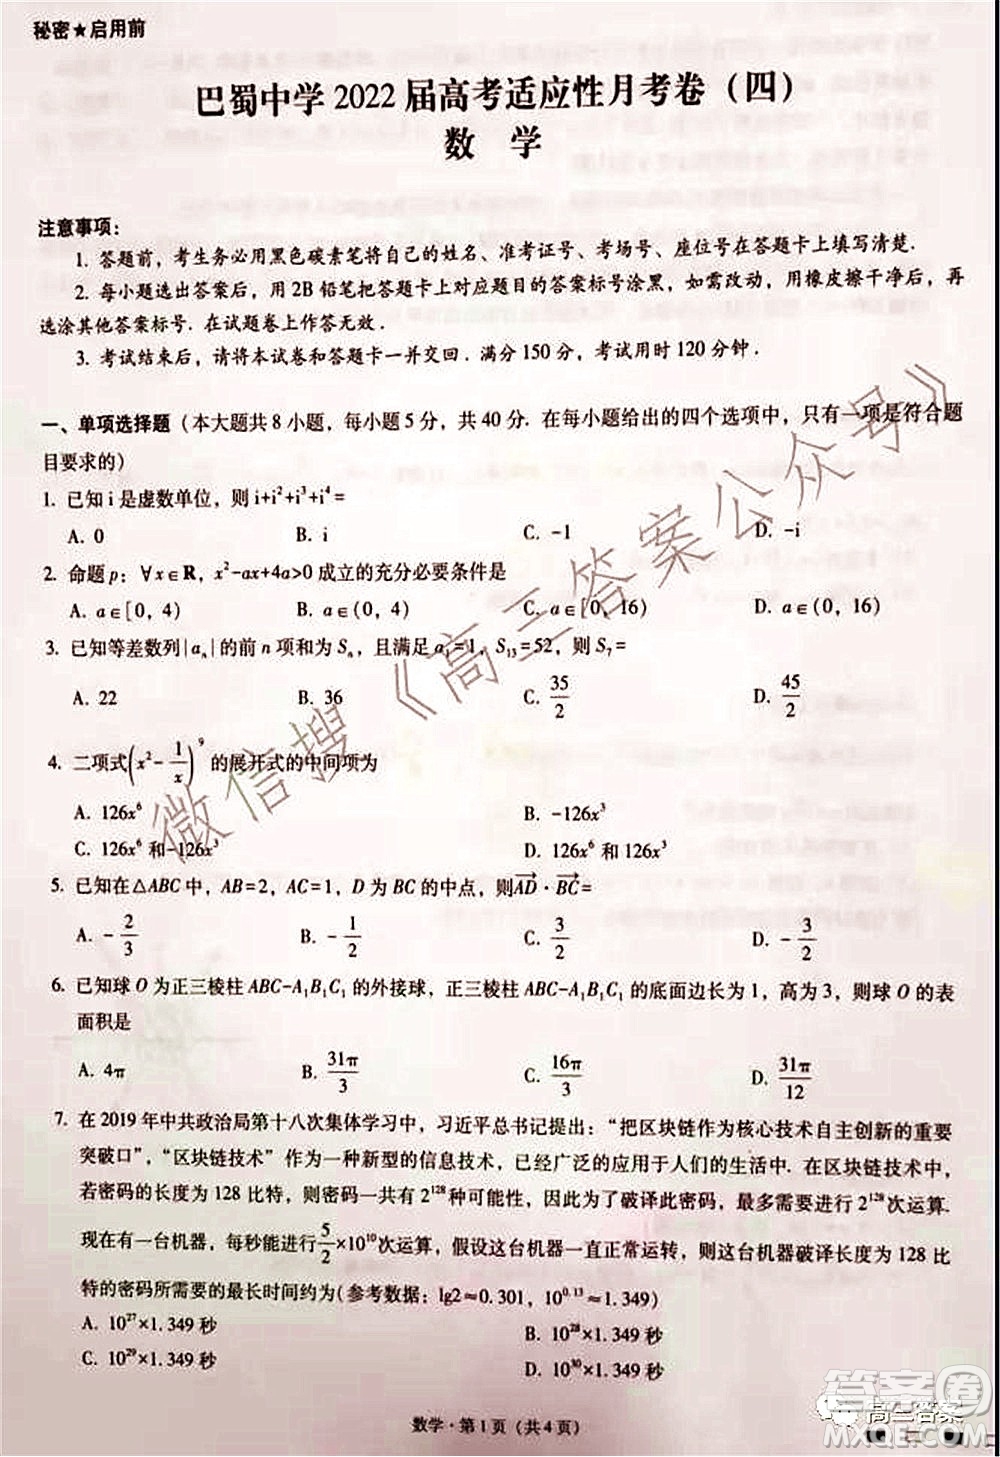 秘密★启用前
巴蜀中学 2022 届高考适应性月考卷（四）
数 学
注意事项：
1. 答题前，考生务必用黑色碳素笔将自己的姓名、准考证号、考场号、座位号在答题卡上填写清楚.
2. 每小题选出答案后，用 2B 铅笔把答题卡上对应题目的答案标号涂黑，如需改动，用橡皮擦干净后，再
选涂其他答案标号. 在试题卷上作答无效.
3. 考试结束后，请将本试卷和答题卡一并交回. 满分 150 分，考试用时 120 分钟.
一、单项选择题（本大题共 8 小题，每小题 5 分，共 40 分. 在每小题给出的四个选项中，只有一项是符合题
目要求的）
1. 已知 i 是虚数单位，则 i+i²+i³+i⁴=
A. 0 B. i C. -1 D. -i
2. 命题 p：∀x∈R，x²-ax+4a>0 成立的充分必要条件是
A. a∈[0, 4) B. a∈(0, 4) C. a∈[0, 16) D. a∈(0, 16)
3. 已知等差数列{aₙ}的前 n 项和为 Sₙ，且满足 a₁=1，S₁₃=52，则 S₇=
A. 22 B. 36 C. 35/2 D. 45/2
4. 二项式(x²-1/x)⁹的展开式的中间项为
A. 126x⁶ B. -126x³
C. 126x⁶ 和-126x³ D. 126x⁶ 和 126x³
5. 已知在△ABC 中，AB=2，AC=1，D 为 BC 的中点，则AD·BC=
A. -2/3 B. -1/2 C. 3/2 D. -3/2
6. 已知球 O 为正三棱柱 ABC-A₁B₁C₁ 的外接球，正三棱柱 ABC-A₁B₁C₁ 的底面边长为 1，高为 3，则球 O 的表
面积是
A. 4π B. 31π/3 C. 16π/3 D. 31π/12
7. 在 2019 年中共政治局第十八次集体学习中，习近平总书记提出：“把区块链作为核心技术自主创新的重要
突破口”，“区块链技术”作为一种新型的信息技术，已经广泛的应用于人们的生活中. 在区块链技术中，
若密码的长度为 128 比特，则密码一共有 2¹²⁸种可能性，因此为了破译此密码，最多需要 2¹²⁸次运算.
现在有一台机器，每秒能进行5/2×10¹⁰次运算，假设这台机器一直正常运转，则这台机器破译长度为 128 比
特的密码所需要的最长时间约为(参考数据：lg2≈0.301，10⁰·¹³≈1.349)
A. 10²⁷×1.349 秒 B. 10²⁸×1.349 秒
C. 10²⁹×1.349 秒 D. 10³⁰×1.349 秒
数学·第 1 页（共 4 页）
微信搜《高三答案公众号》
答案圈
高三答案